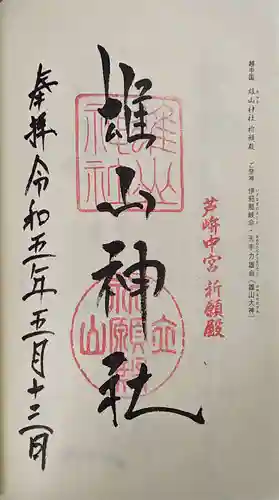 越中國 雄山神社 祈願殿 ご祭神 伊邪那岐命・天手力雄命(雄山大神)
芦峅中宮 祈願殿
雄山神社
奉拝 令和五年五月十三日
雄山神社
立山
祈願殿